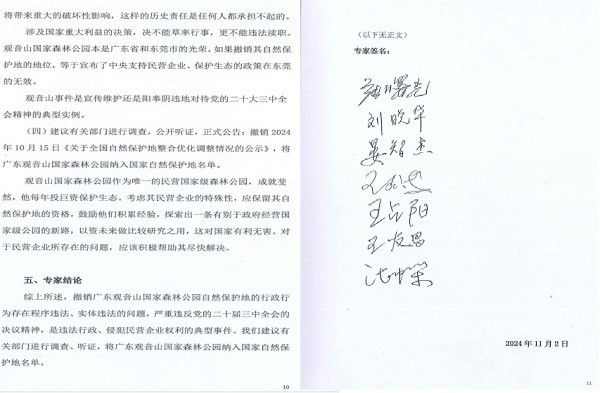 将带来重大的破坏性影响，这样的历史责任是任何人都承担不起的。
涉及国家重大利益的决策，决不能草率行事，更不能违法渎职。
观音山国家森林公园本是广东省和东莞市的光荣，如果撤销其自然保
护地的地位，等于宣布了中央支持民营企业、保护生态的政策在东莞
的无效。
观音山事件是宣传维护还是阳奉阴违地对待党的二十大三中全
会精神的典型实例。
（四）建议有关部门进行调查，公开听证，正式公告：撤销 2024
年 10 月 15 日《关于全国自然保护地整合优化调整情况的公示》，将
广东观音山国家森林公园纳入国家自然保护地名单。
观音山国家森林公园作为唯一的民营国家级森林公园，成就斐
然，他每年投巨资保护生态。考虑其民营企业的特殊性，应保留其自
然保护地的资格，鼓励他们积累经验，探索出一条有别于政府经营国
家级公园的新路，以资未来做比较研究之用，这对国家有利无害。对
于民营企业所存在的问题，应该积极帮助其尽快解决。
五、专家结论
综上所述，撤销广东观音山国家森林公园自然保护地的行政行
为存在程序违法、实体违法的问题，严重违反党的二十届三中全会的
决议精神，是违法行政、侵犯民营企业权利的典型事件。我们建议有
关部门进行调查、听证，将广东观音山国家森林公园纳入国家自然保
护地名单。
10
（以下无正文）
专家签名：
刘晓华
晏智杰
王占阳
王友恩
2024 年 11 月 2 日
11